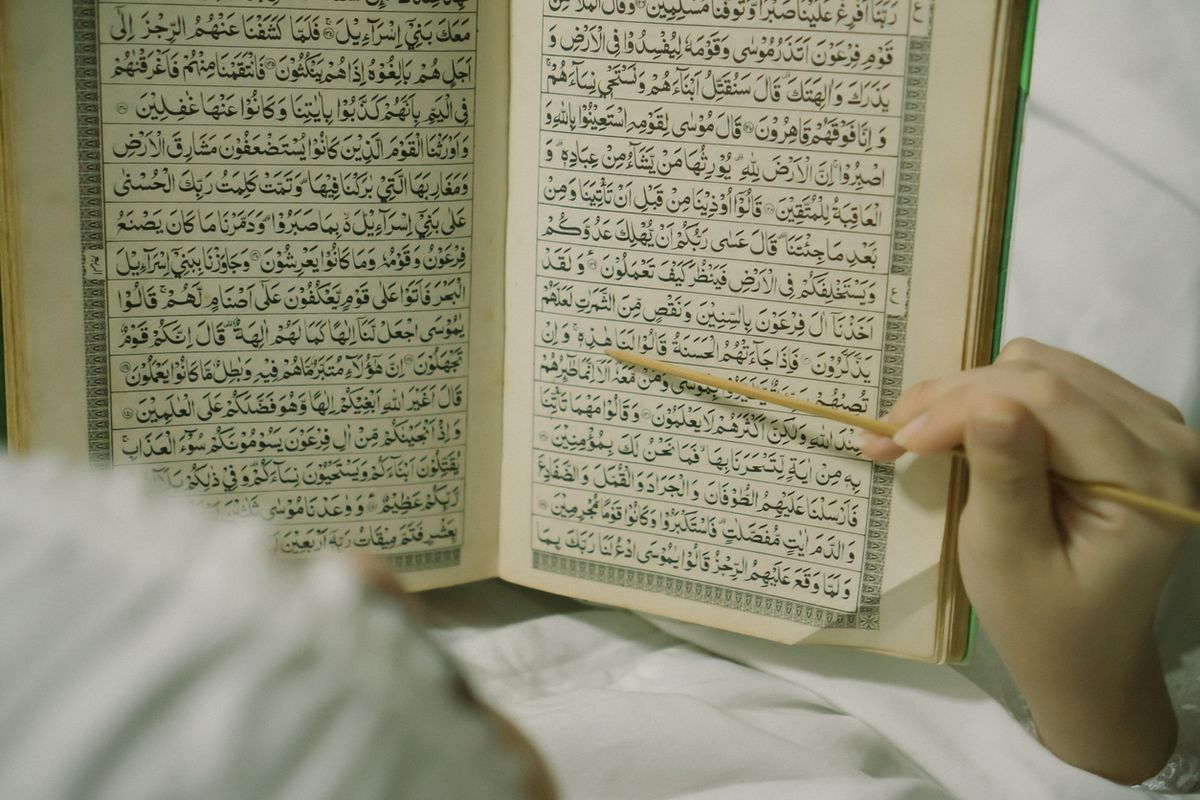 رَبَّنَآ اَفْرِغْ عَلَيْنَا صَبْرًا وَّتَوَفَّنَا مُسْلِمِيْنَ وَقَالَ الْمَلَاُ مِنْ
قَوْمِ فِرْعَوْنَ اَتَذَرُ مُوْسٰى وَقَوْمَهٗ لِيُفْسِدُوْا فِى الْاَرْضِ وَ
يَذَرَكَ وَاٰلِهَتَكَ قَالَ سَنُقَتِّلُ اَبْنَآءَهُمْ وَنَسْتَحْيٖ نِسَآءَهُمْ
وَاِنَّا فَوْقَهُمْ قَاهِرُوْنَ قَالَ مُوْسٰى لِقَوْمِهِ اسْتَعِيْنُوْا بِاللّٰهِ وَ
اصْبِرُوْا اِنَّ الْاَرْضَ لِلّٰهِ يُوْرِثُهَا مَنْ يَّشَآءُ مِنْ عِبَادِهٖ وَ
الْعَاقِبَةُ لِلْمُتَّقِيْنَ قَالُوْٓا اُوْذِيْنَا مِنْ قَبْلِ اَنْ تَاْتِيَنَا وَمِنْ
بَعْدِ مَا جِئْتَنَا قَالَ عَسٰى رَبُّكُمْ اَنْ يُّهْلِكَ عَدُوَّكُمْ
وَيَسْتَخْلِفَكُمْ فِى الْاَرْضِ فَيَنْظُرَ كَيْفَ تَعْمَلُوْنَ وَلَقَدْ
اَخَذْنَآ اٰلَ فِرْعَوْنَ بِالسِّنِيْنَ وَنَقْصٍ مِّنَ الثَّمَرٰتِ لَعَلَّهُمْ
يَذَّكَّرُوْنَ فَاِذَا جَآءَتْهُمُ الْحَسَنَةُ قَالُوْا لَنَا هٰذِهٖ وَاِنْ
تُصِبْهُمْ بِمُوْسٰى وَمَنْ مَّعَهٗ اَلَآ اِنَّمَا طٰٓئِرُهُمْ
عِنْدَ اللّٰهِ وَلٰكِنَّ اَكْثَرَهُمْ لَا يَعْلَمُوْنَ وَقَالُوْا مَهْمَا تَاْتِنَا
بِهٖ مِنْ اٰيَةٍ لِّتَسْحَرَنَا بِهَا فَمَا نَحْنُ لَكَ بِمُؤْمِنِيْنَ
فَاَرْسَلْنَا عَلَيْهِمُ الطُّوْفَانَ وَالْجَرَادَ وَالْقُمَّلَ وَالضَّفَادِعَ
وَالدَّمَ اٰيٰتٍ مُّفَصَّلٰتٍ فَاسْتَكْبَرُوْا وَكَانُوْا قَوْمًا مُّجْرِمِيْنَ
وَلَمَّا وَقَعَ عَلَيْهِمُ الرِّجْزُ قَالُوْا يٰمُوْسَى ادْعُ لَنَا رَبَّكَ بِمَا
مَعَكَ بَنِيْٓ اِسْرَآءِيْلَ فَلَمَّا كَشَفْنَا عَنْهُمُ الرِّجْزَ اِلٰٓى
اَجَلٍ هُمْ بَالِغُوْهُ اِذَا هُمْ يَنْكُثُوْنَ فَانْتَقَمْنَا مِنْهُمْ فَاَغْرَقْنٰهُمْ
فِى الْيَمِّ بِاَنَّهُمْ كَذَّبُوْا بِاٰيٰتِنَا وَكَانُوْا عَنْهَا غٰفِلِيْنَ
وَاَوْرَثْنَا الْقَوْمَ الَّذِيْنَ كَانُوْا يُسْتَضْعَفُوْنَ مَشَارِقَ الْاَرْضِ
وَمَغَارِبَهَا الَّتِيْ بٰرَكْنَا فِيْهَا وَتَمَّتْ كَلِمَتُ رَبِّكَ الْحُسْنٰى
عَلٰى بَنِيْٓ اِسْرَآءِيْلَ بِمَا صَبَرُوْا وَدَمَّرْنَا مَا كَانَ يَصْنَعُ
فِرْعَوْنُ وَقَوْمُهٗ وَمَا كَانُوْا يَعْرِشُوْنَ وَجَاوَزْنَا بِبَنِيْٓ اِسْرَآءِيْلَ
الْبَحْرَ فَاَتَوْا عَلٰى قَوْمٍ يَّعْكُفُوْنَ عَلٰٓى اَصْنَامٍ لَّهُمْ قَالُوْا
يٰمُوْسَى اجْعَلْ لَّنَآ اِلٰهًا كَمَا لَهُمْ اٰلِهَةٌ قَالَ اِنَّكُمْ قَوْمٌ
تَجْهَلُوْنَ اِنَّ هٰٓؤُلَآءِ مُتَبَّرٌ مَّا هُمْ فِيْهِ وَبٰطِلٌ مَّا كَانُوْا يَعْمَلُوْنَ
قَالَ اَغَيْرَ اللّٰهِ اَبْغِيْكُمْ اِلٰهًا وَّهُوَ فَضَّلَكُمْ عَلَى الْعٰلَمِيْنَ
وَاِذْ اَنْجَيْنٰكُمْ مِّنْ اٰلِ فِرْعَوْنَ يَسُوْمُوْنَكُمْ سُوْٓءَ الْعَذَابِ
يُقَتِّلُوْنَ اَبْنَآءَكُمْ وَيَسْتَحْيُوْنَ نِسَآءَكُمْ وَفِيْ ذٰلِكُمْ بَلَآءٌ
رَّبِّكُمْ عَظِيْمٌ وَوٰعَدْنَا مُوْسٰى ثَلٰثِيْنَ
بِعَشْرٍ فَتَمَّ مِيْقَاتُ رَبِّهٖٓ اَرْبَعِيْنَ